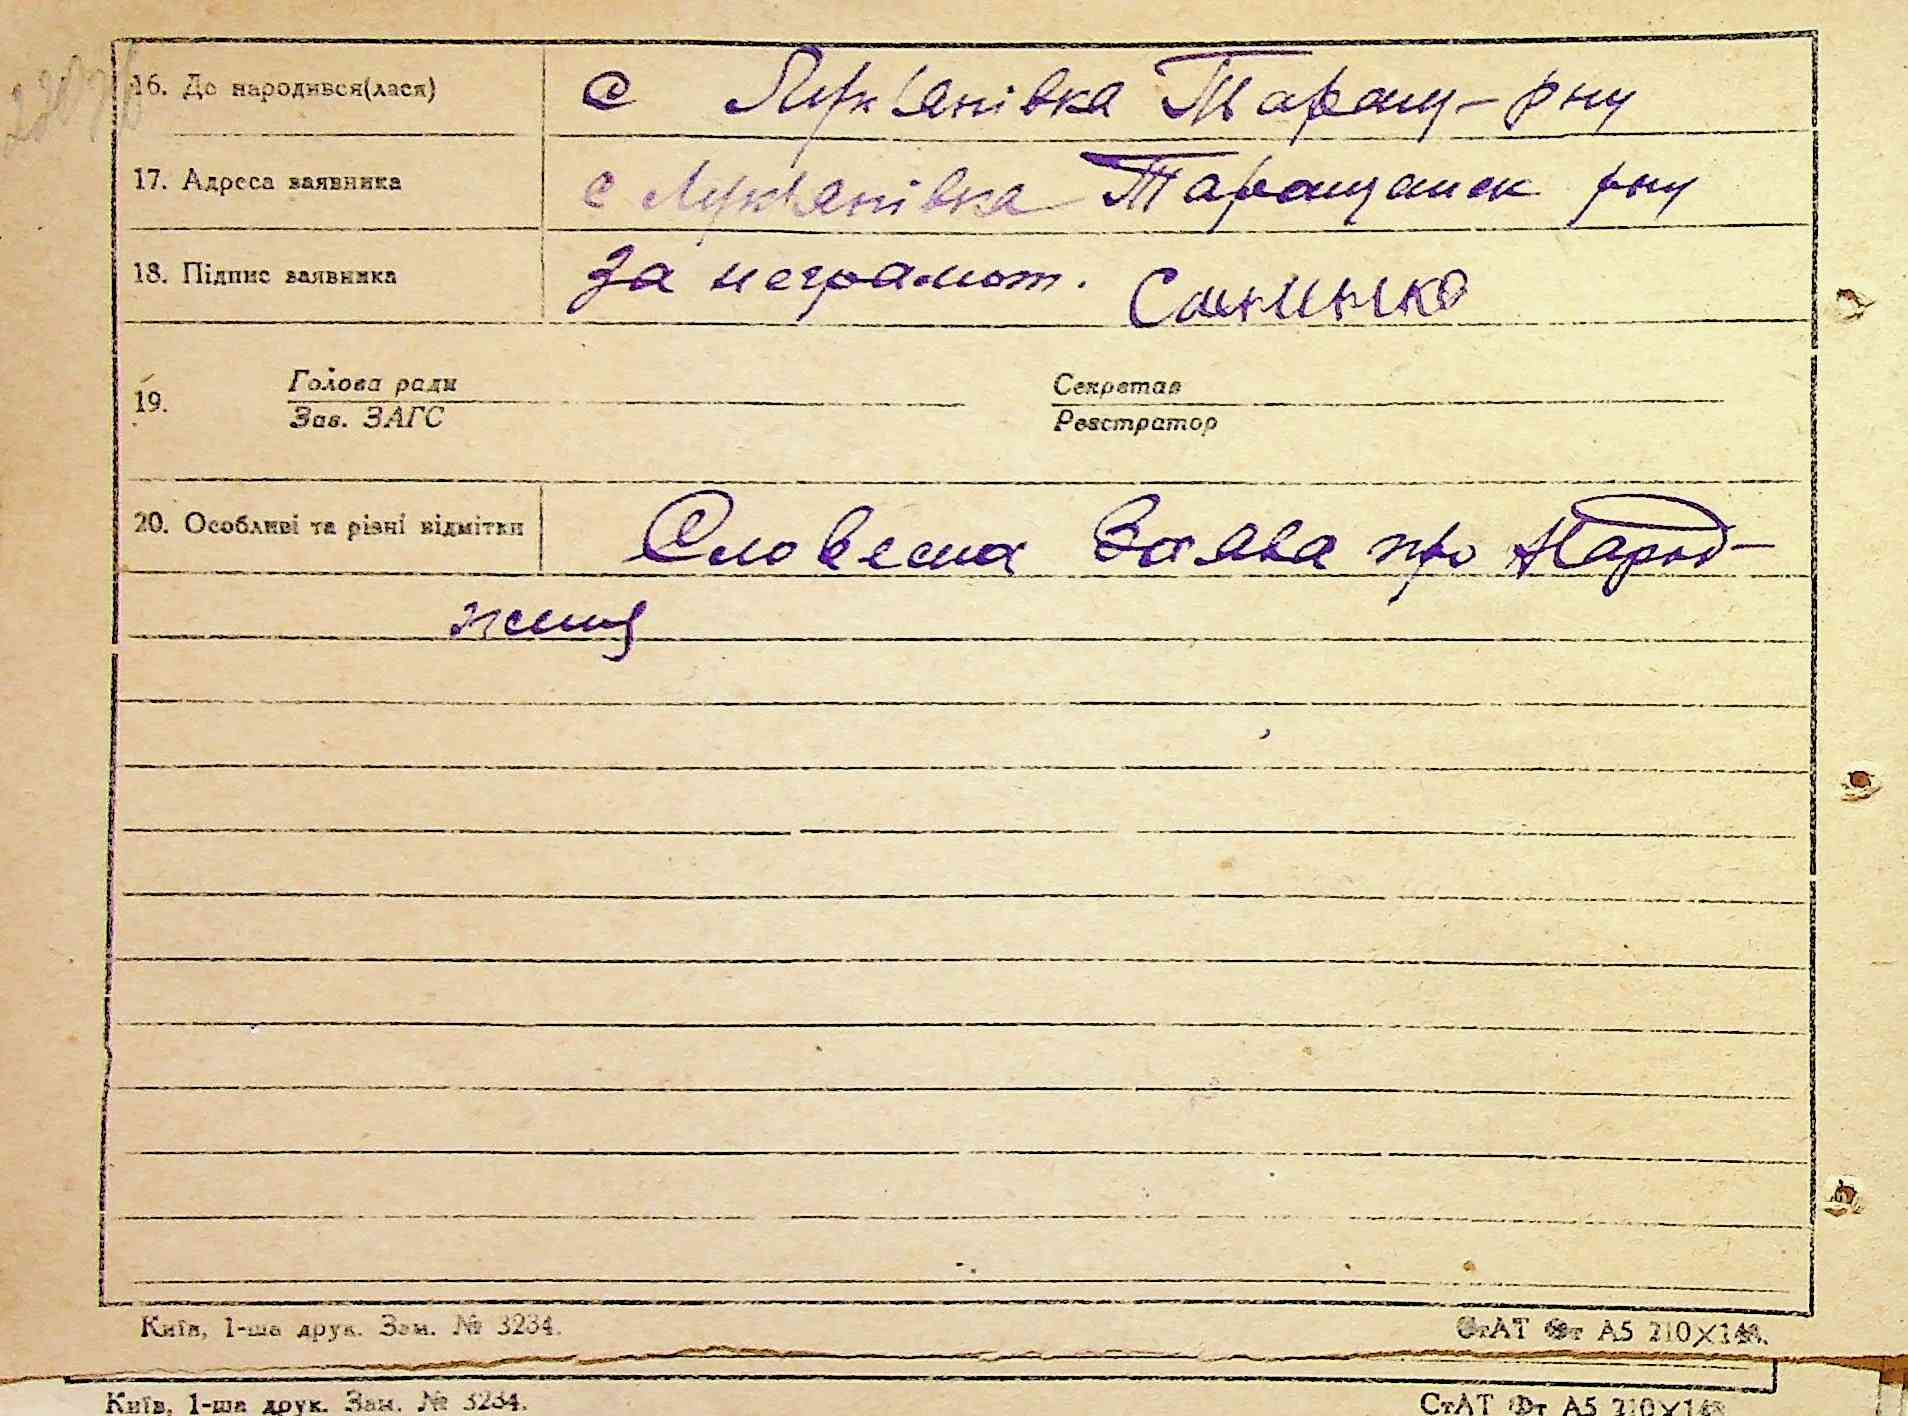 16. Де народився(лася) с Лук'янівка Таращ-рну
17. Адреса заявника с Лук'янівка Таращанск рну
18. Підпис заявника За неграмот.
19. Голова ради Секретар
Зав. ЗАГС Реєстратор
20. Особливі та різні відмітки Словесна Заява про Народ-
ження
Київ, 1-ша друк. Зам. № 3234. СтАТ Фт А5 210×148.
Київ, 1-ша друк. Зам. № 3234. СтАТ Фт А5 210×148